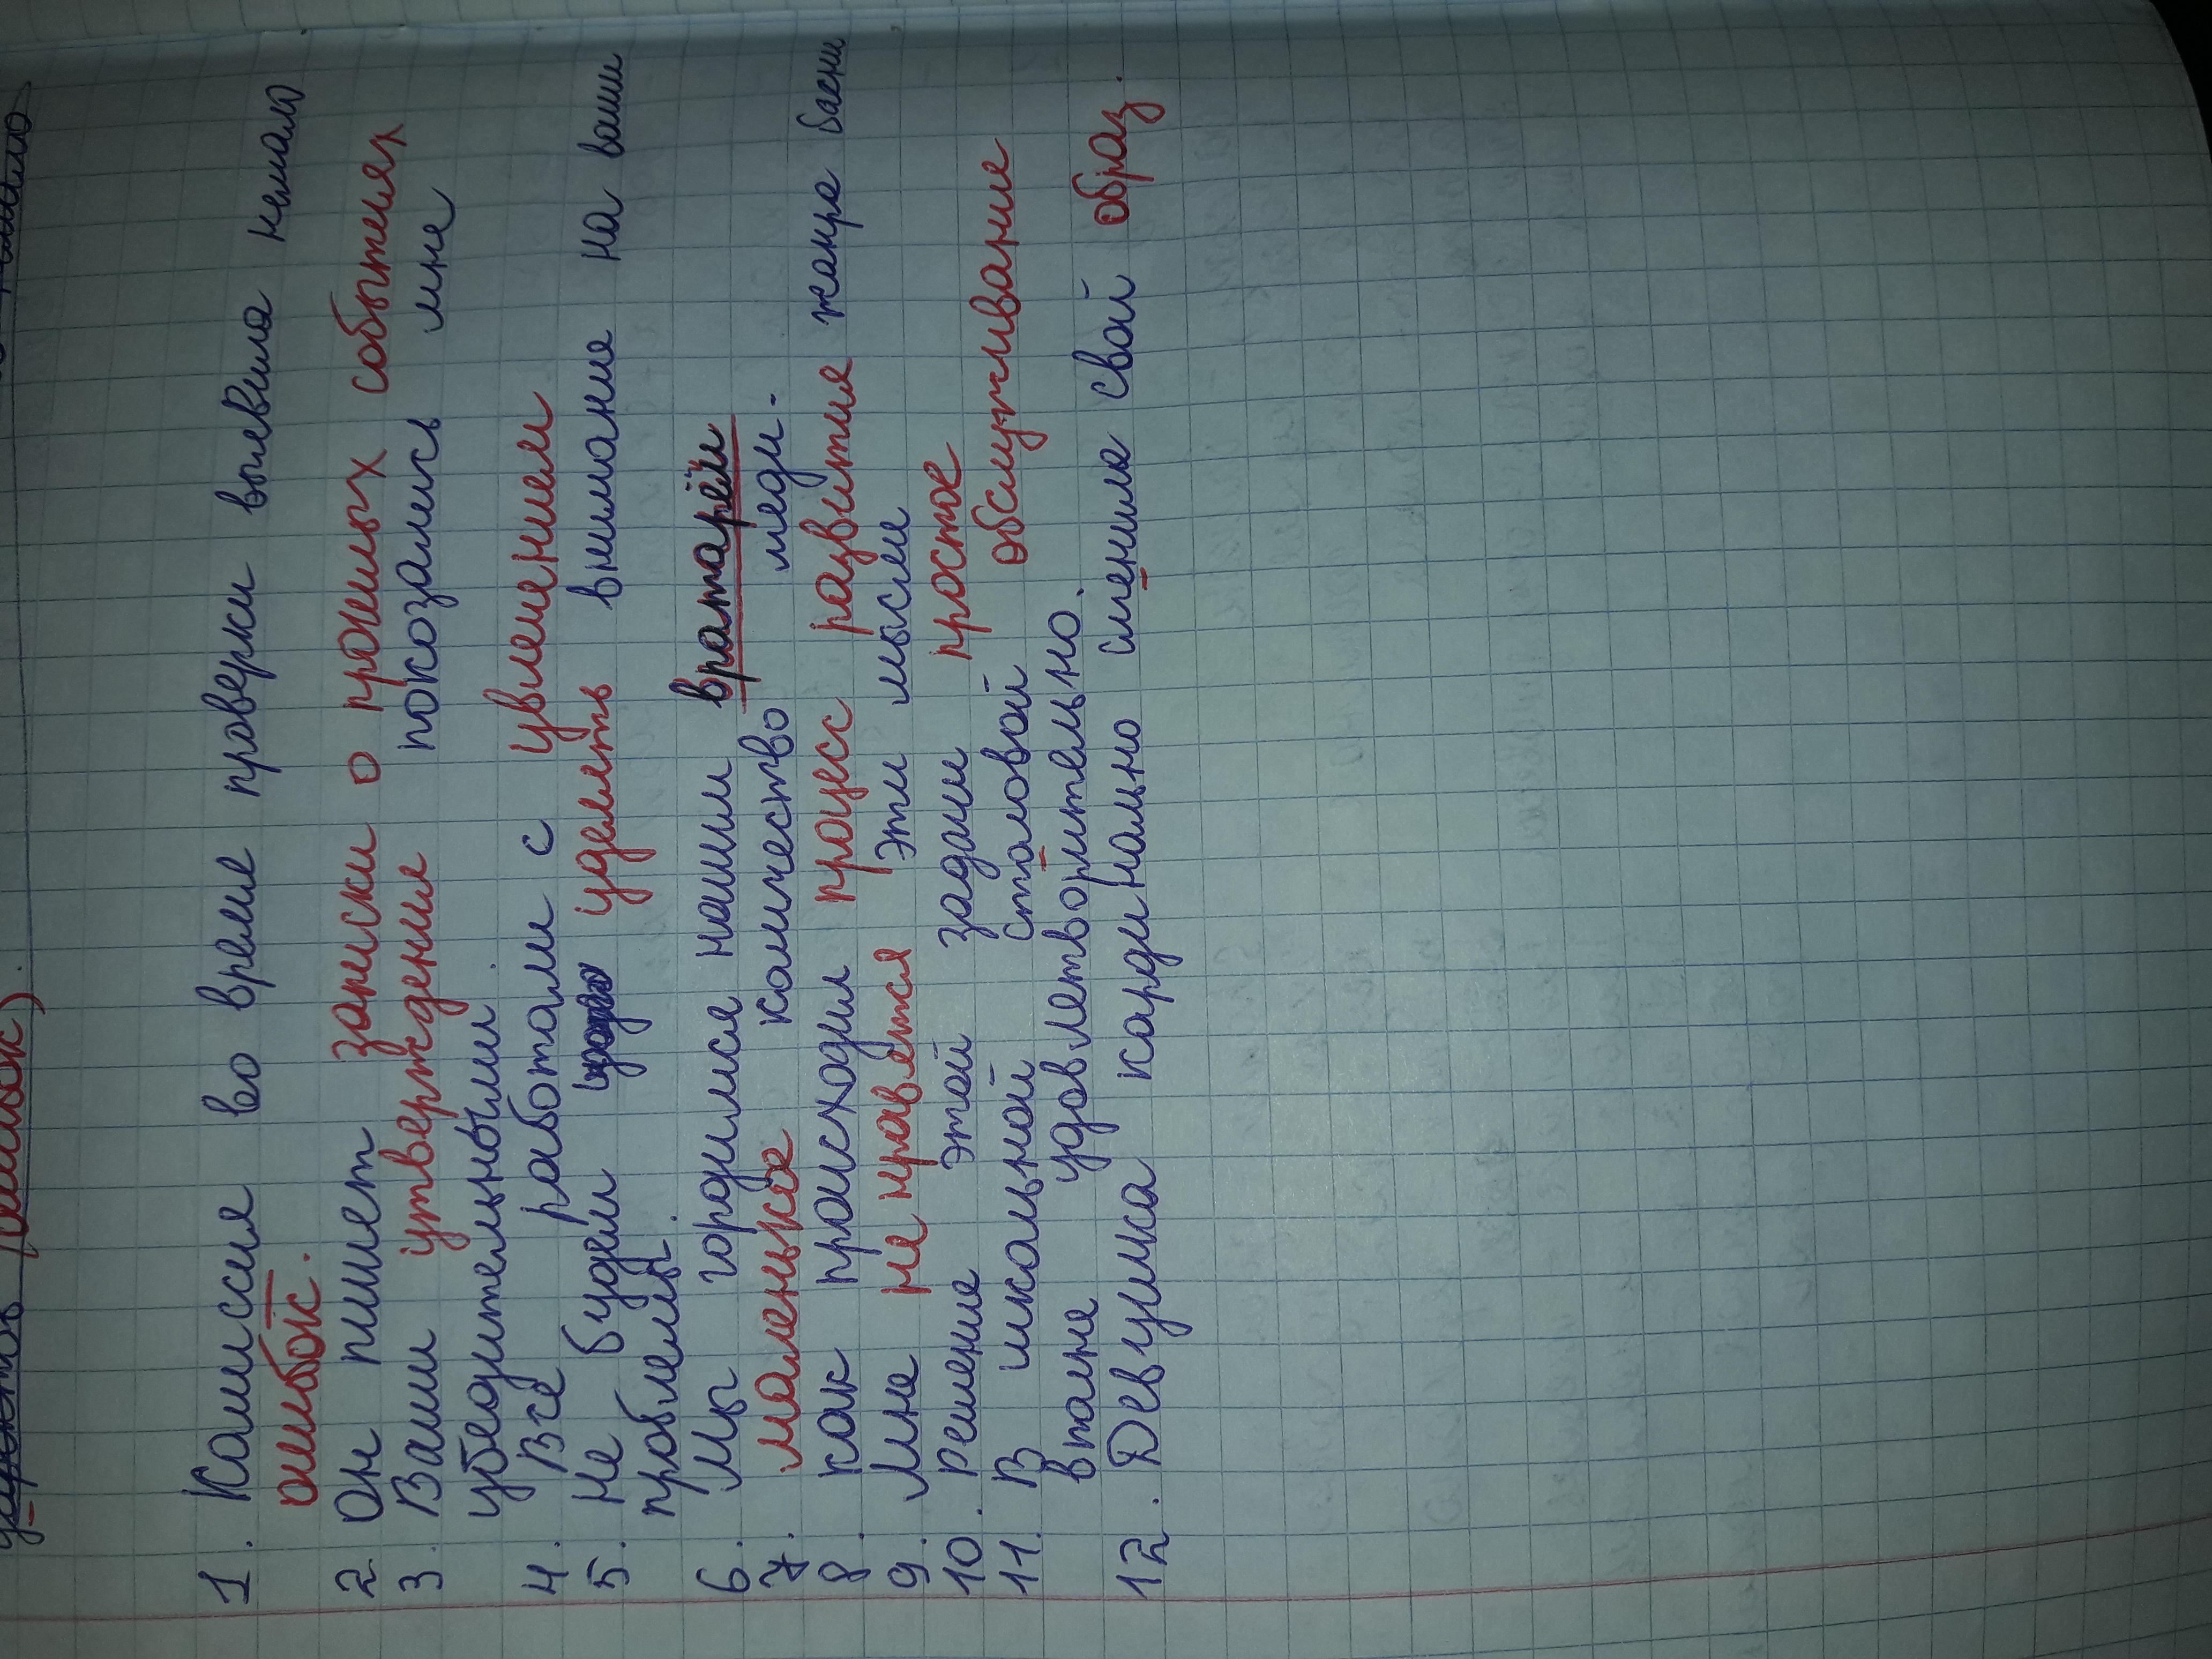 1. Комиссия во время проверки выявила немало
ошибок.
2 Он пишет записки о прошлых событиях
3. Ваши утверждения показались мне
убедительными.
4. Все работали с увлечением
5. Не будем уделять внимание на ваши
проблемы.
6. Мы гордимся нашим вратарём
7. маленькое количество меди.
8. как происходил процесс развития жанра басни
9. Мне не нравятся эти мысли
10. Решение этой задачи простое
11. В школьной столовой обслуживание
вполне удовлетворительно.
12. Девушка кардинально сменила свой образ.